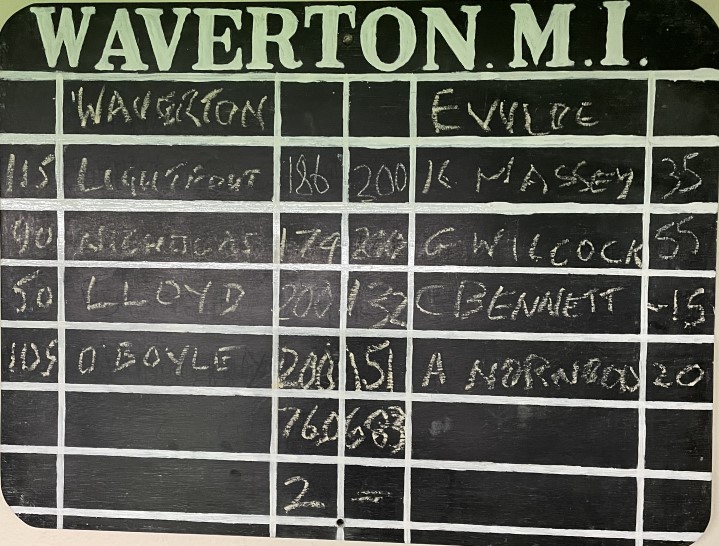 WAVERTON. M.I.
WAVERTON EVVLDE
115 LIGHTFOOT 186 200 K MASSEY 35
90 NICHOLAS 174 200 G WILCOCK 55
50 LLOYD 200 132 C BENNETT -15
105 O'BOYLE 200 151 A 20
760 683
2 =